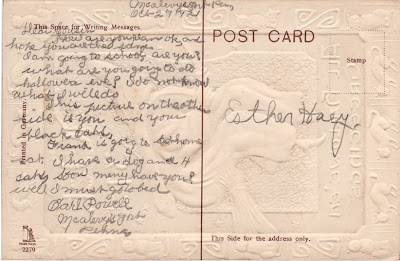 Mcalevys Fort Penn
Oct 27 1912
This Space for Writing Messages.
POST CARD
Stamp
Dear Cousin
how are you I am ok and
hope you are the same.
I am going to school are you?
what are you going to do
hallows eve? I do not know
what I will do
This picture on the other
side is you and your
black cat.
Frank is going to
cat. I have a dog and 4
cats how meny have you?
well I must go to bed
Earl Powell
Mcalevys Fort
Penna
Esther Haey
Printed in Germany.
2279
This Side for the address only.